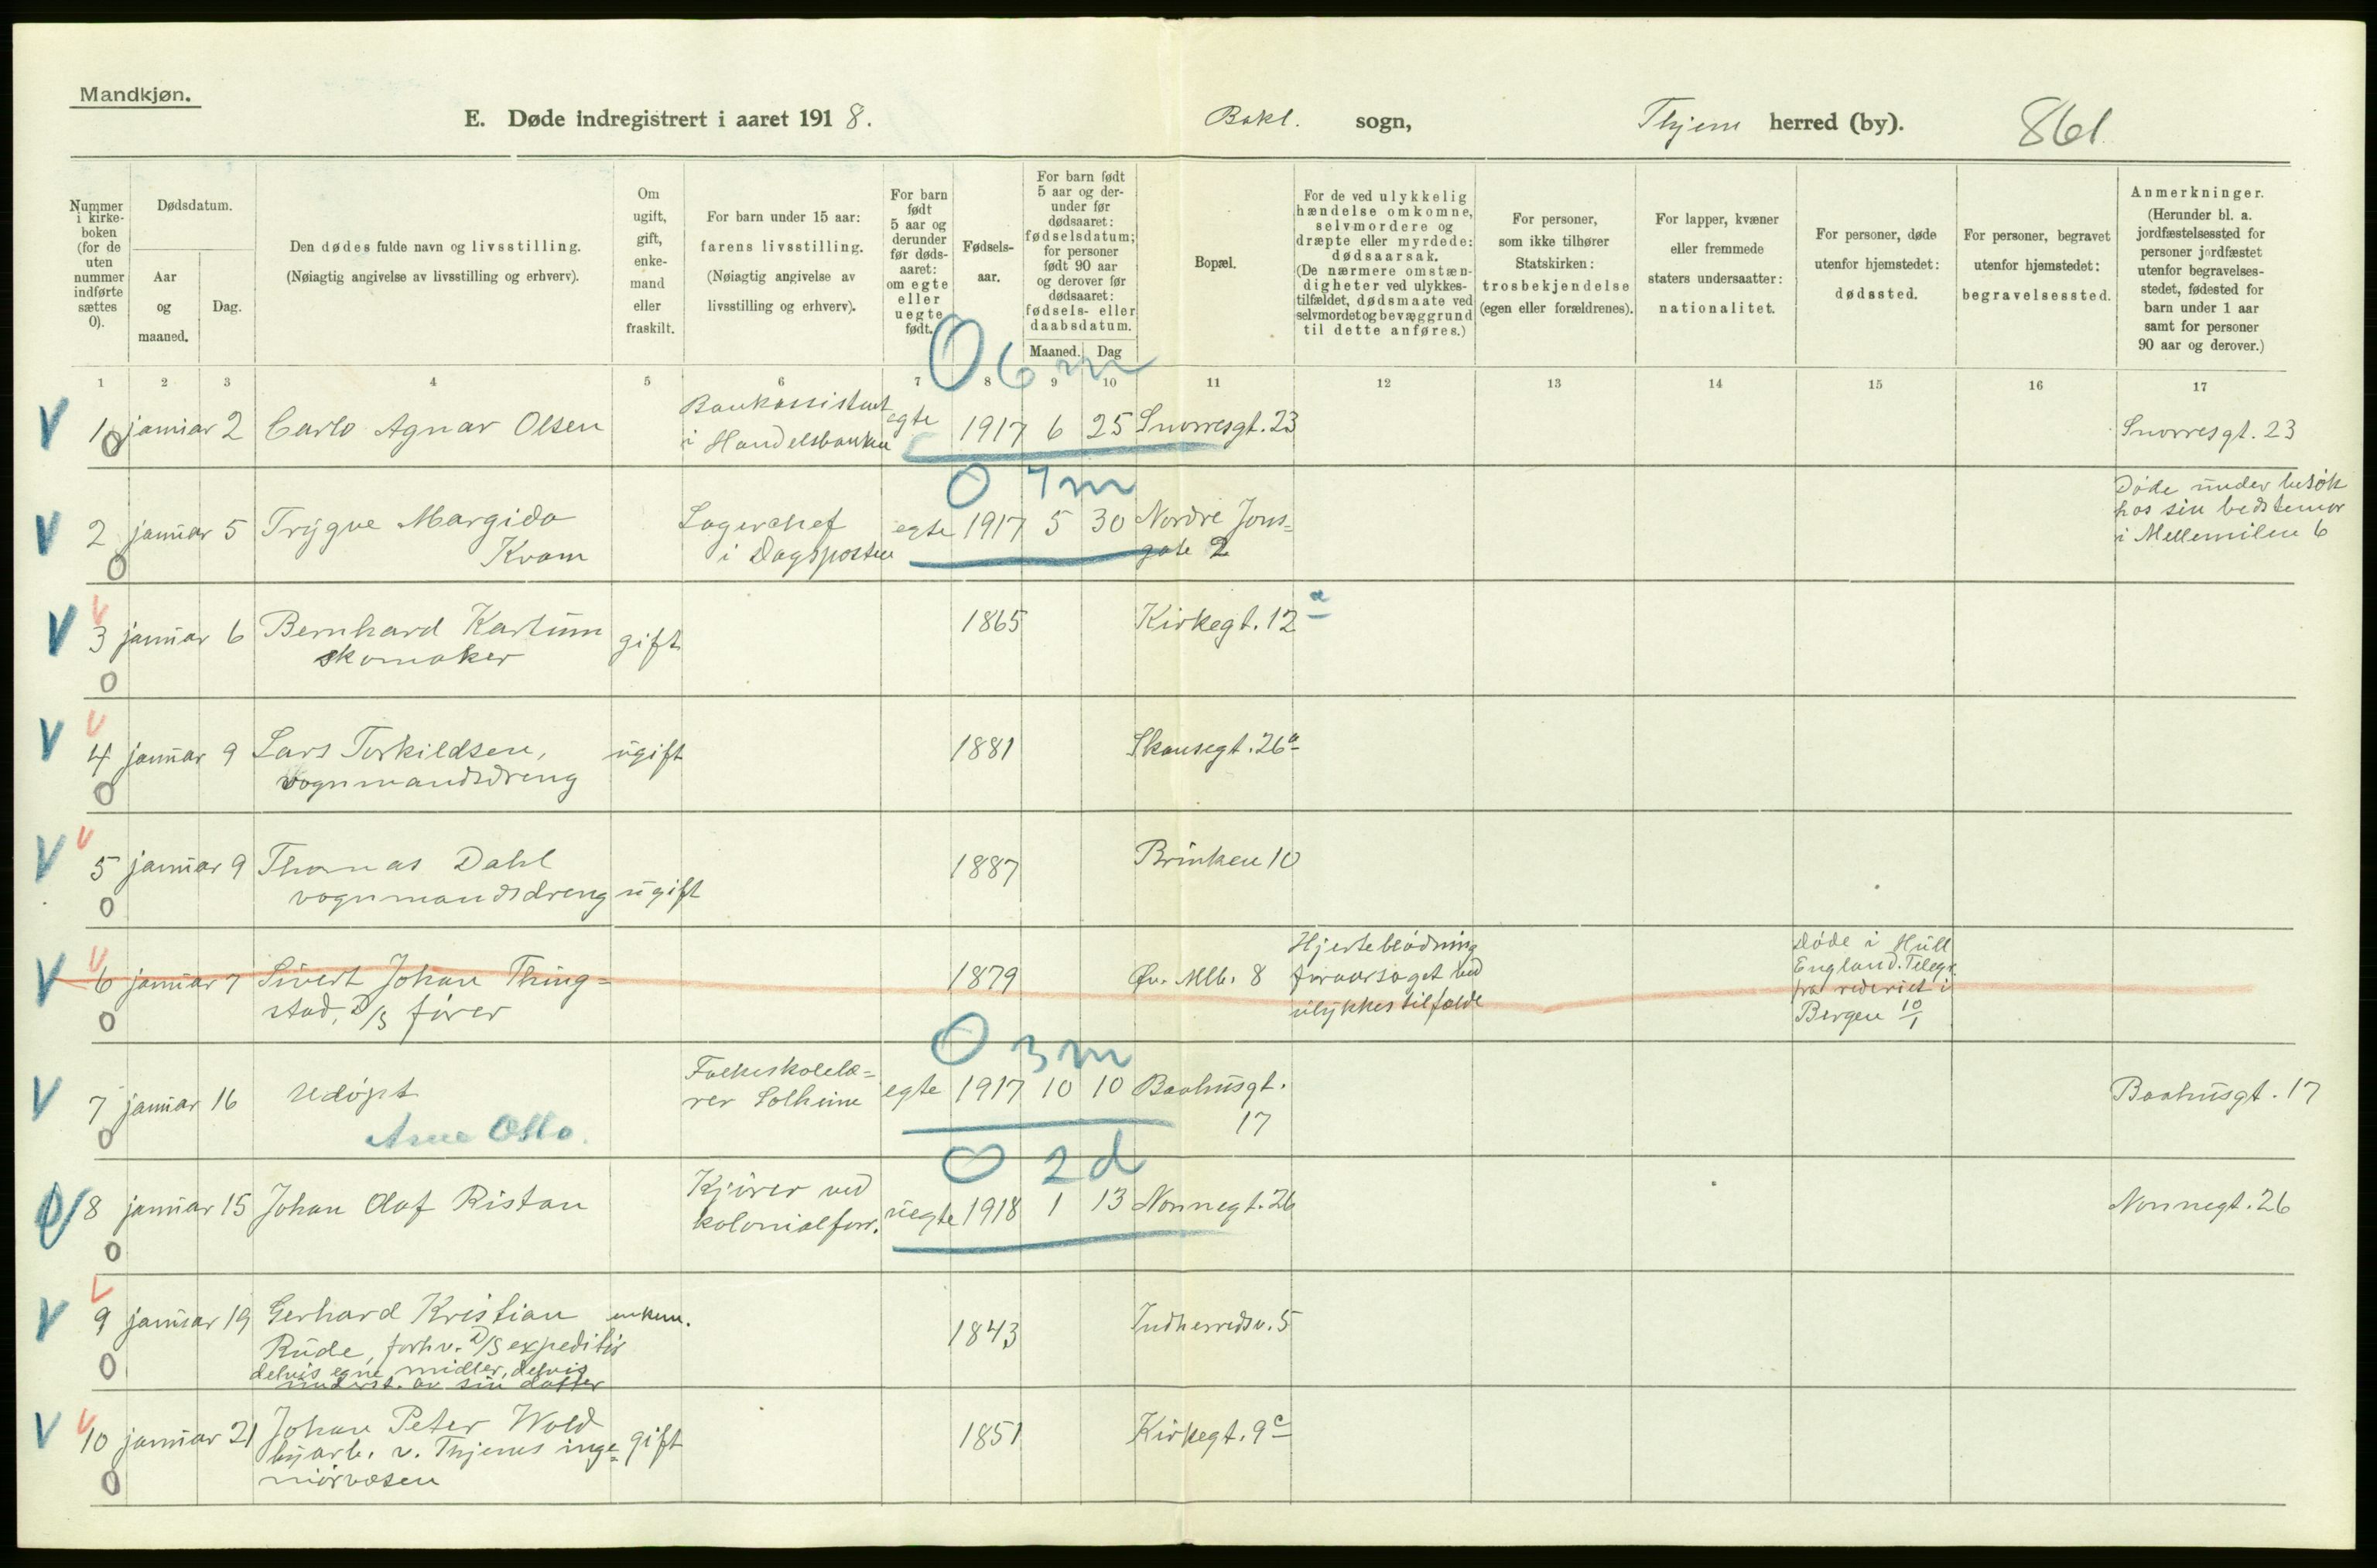 Mandkjøn.
E. Døde indregistrert i aaret 1918. Bakl. sogn, Thjem herred (by). 861
Nummer i kirke-boken (for de uten nummer indførte sættes 0).
Dødsdatum.
Aar og maaned.
Dag.
Den dødes fulde navn og livsstilling.
(Nøiagtig angivelse av livsstilling og erhverv).
Om ugift, gift, enke-mand eller fraskilt.
For barn under 15 aar:
farens livsstilling.
(Nøiagtig angivelse av livsstilling og erhverv).
For barn født 5 aar og derunder før døds-aaret: om egte eller uegte født.
Fødsels-aar.
For barn født 5 aar og der-under før dødsaaret: fødselsdatum; for personer født 90 aar og derover før dødsaaret: fødsels- eller daabsdatum.
Maaned. Dag
Bopæl.
For de ved ulykkelig hændelse omkomne, selvmordere og dræpte eller myrdede: dødsaarsak.
(De nærmere omstæn-digheter ved ulykkes-tilfældet, dødsmaate ved selvmordet og bevæggrund til dette anføres.)
For personer, som ikke tilhører Statskirken: trosbekjendelse (egen eller forældrenes).
For lapper, kvæner eller fremmede staters undersaatter: nationalitet.
For personer, døde utenfor hjemstedet: dødssted.
For personer, begravet utenfor hjemstedet: begravelsessted.
Anmerkninger.
(Herunder bl. a. jordfæstelsessted for personer jordfæstet utenfor begravelses-stedet, fødested for barn under 1 aar samt for personer 90 aar og derover.)
1 2 3 4 5 6 7 8 9 10 11 12 13 14 15 16 17
0 6 m
V 1 januar 2 Carlo Agnar Olsen Bankassistent egte 1917 6 25 Snorresgt. 23 Snorresgt. 23
0 i Handelsbanken
0 7 m
V 2 januar 5 Trygve Margido Lagerchef egte 1917 5 30 Nordre Jons= Døde under besøk
0 Kvam i Dagsposten gate 2 hos sin bedstemor
i Mellemilen 6
V V 3 januar 6 Bernhard Kartum gift 1865 Kirkegt. 12 a
0 skomaker
V V 4 januar 9 Lars Torkildsen, ugift 1881 Skansegt. 26 a
0 vognmandsdreng
V V 5 januar 9 Thomas Dahl 1887 Brinken 10
0 vognmandsdreng ugift
V V 6 januar 7 Sivert Johan Thing= 1879 Øv. Mlb. 8 Hjerteblødning Døde i Hull
0 stad, D/S fører foraarsaget ved England. Telegr.
ulykkestilfælde fra rederiet i
Bergen 10/1
0 3 m
V 7 januar 16 udøpt Folkeskolelæ= egte 1917 10 10 Baahusgt. Baahusgt. 17
0 Arne Otto. rer Solheim 17
0 2 d
8 januar 15 Johan Olaf Ristan Kjører ved uegte 1918 1 13 Nonnegt. 26 Nonnegt. 26
0 kolonialforr.
V V 9 januar 19 Gerhard Kristian enkem. 1843 Indherredsv. 5
0 Rude, forhv. D/S expeditør
delvis egne midler, delvis
underst. av sin datter
V V 10 januar 21 Johan Peter Wold gift 1851 Kirkegt. 9 c
0 byarb. v. Thjems inge=
niørvæsen